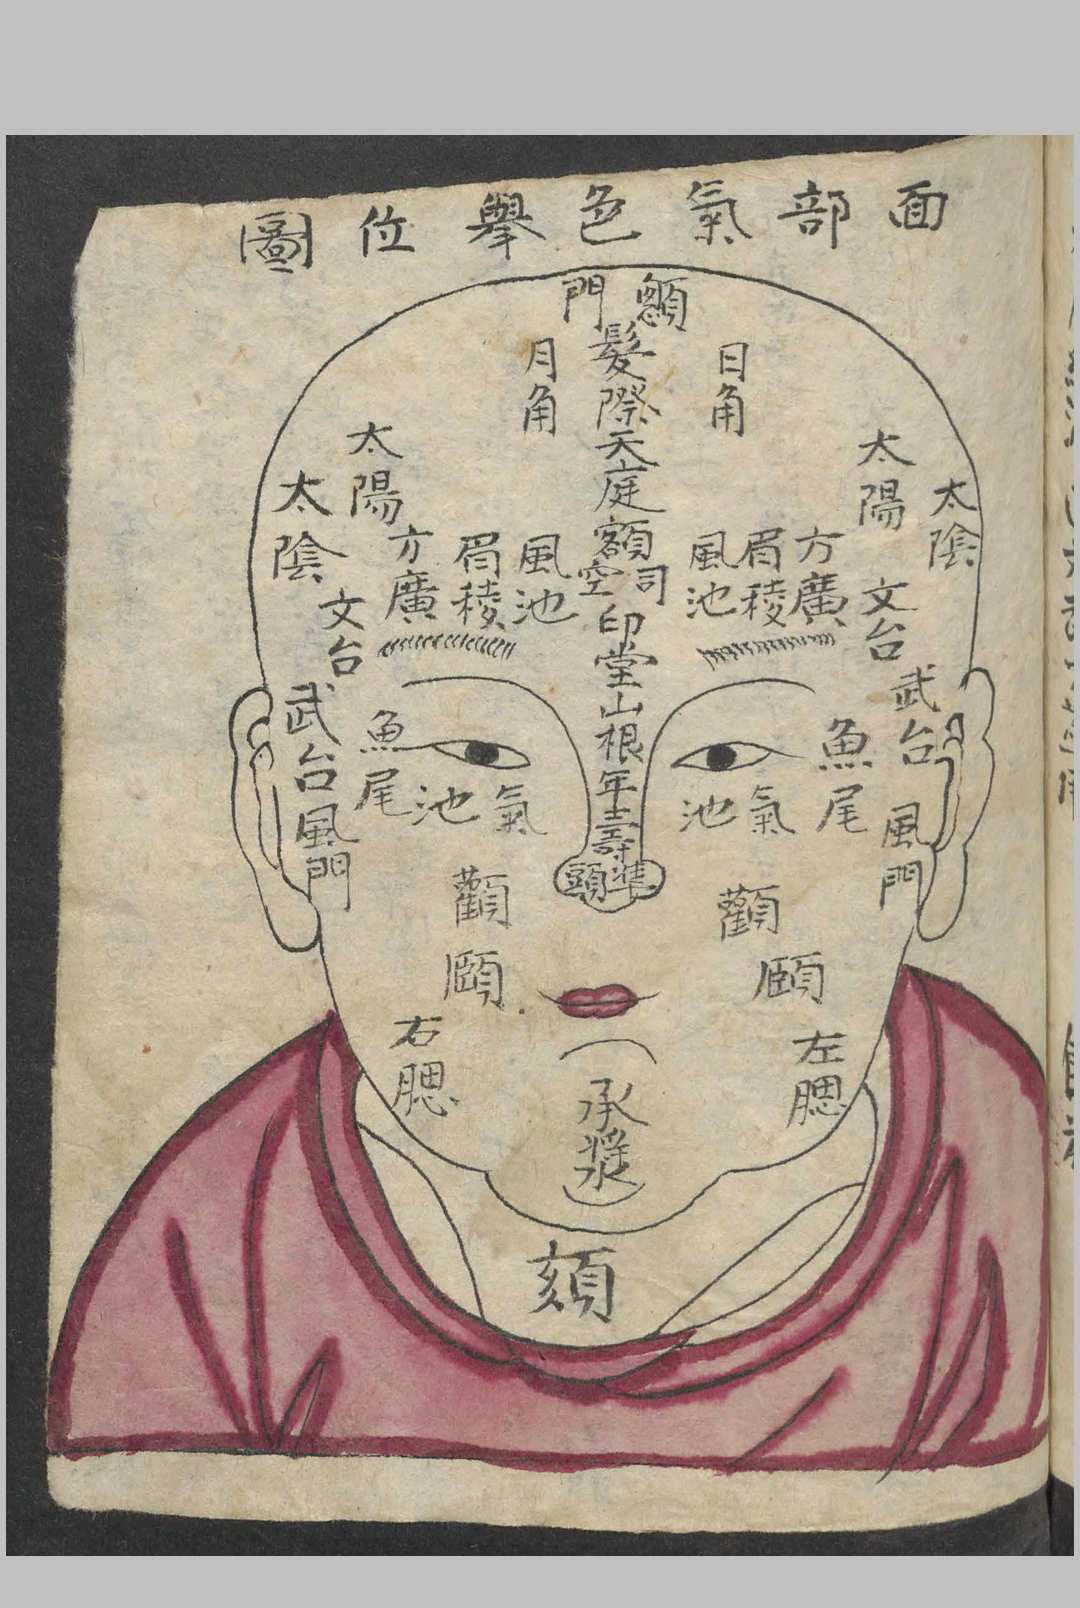 面部氣色舉位圖
顖門
髮際天庭額
司空
印堂山根年壽
準頭
日角
月角
太陽
太陰
太陽
太陰
風池
眉稜
方廣
文台
武台
風池
眉稜
方廣
文台
武台
魚尾
氣池
風門
魚尾
氣池
風門
顴
頤
左腮
顴
頤
右腮
承漿
頦